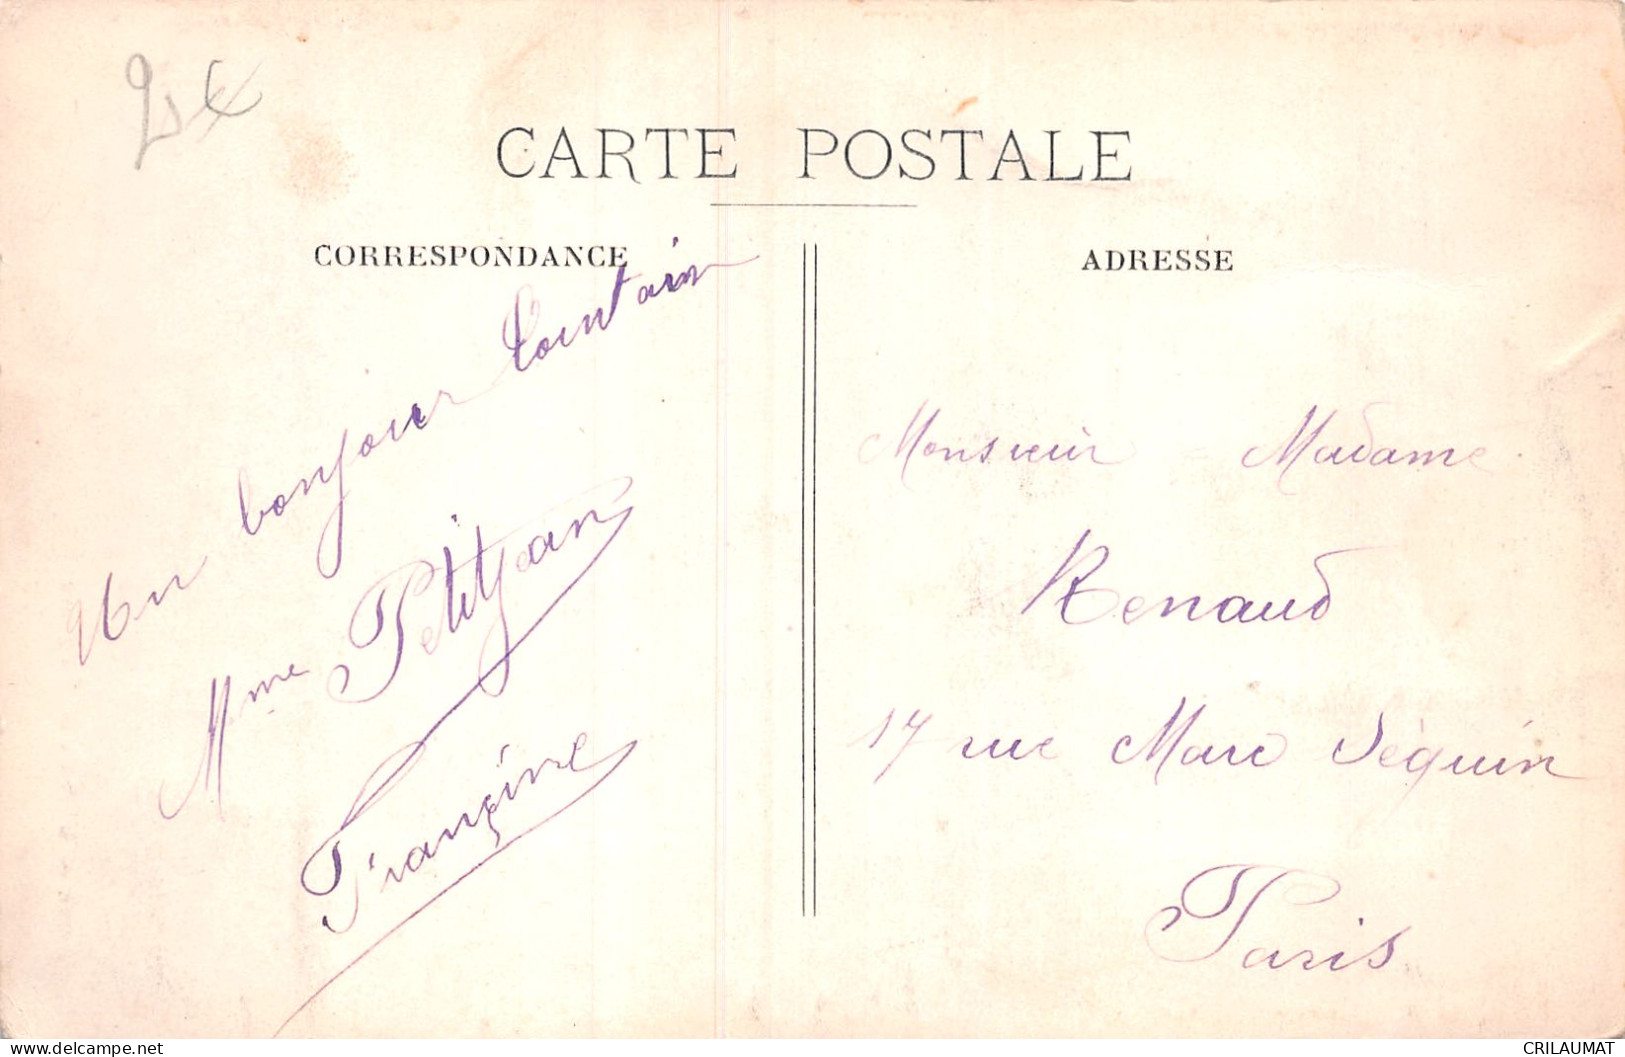 CARTE POSTALE
CORRESPONDANCE
ADRESSE
Un bonjour lointain
Mme Petitjean
Françine
Monsieur - Madame
Renaud
17 rue Marc Séguin
Paris
delcampe.net
CRILAUMAT